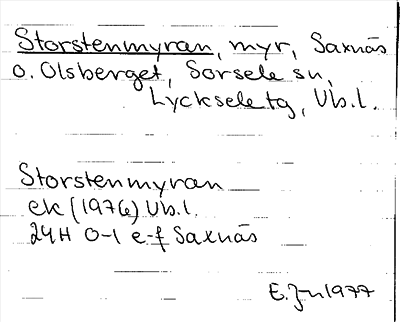 Storstenmyran, myr, Saxnäs
o. Olsberget, Sorsele sn,
Lycksele tg, Vb.l.
Storstenmyran
ek (1976) Vb.l.
24H 0-1 e-f Saxnäs
E. Jn 1977